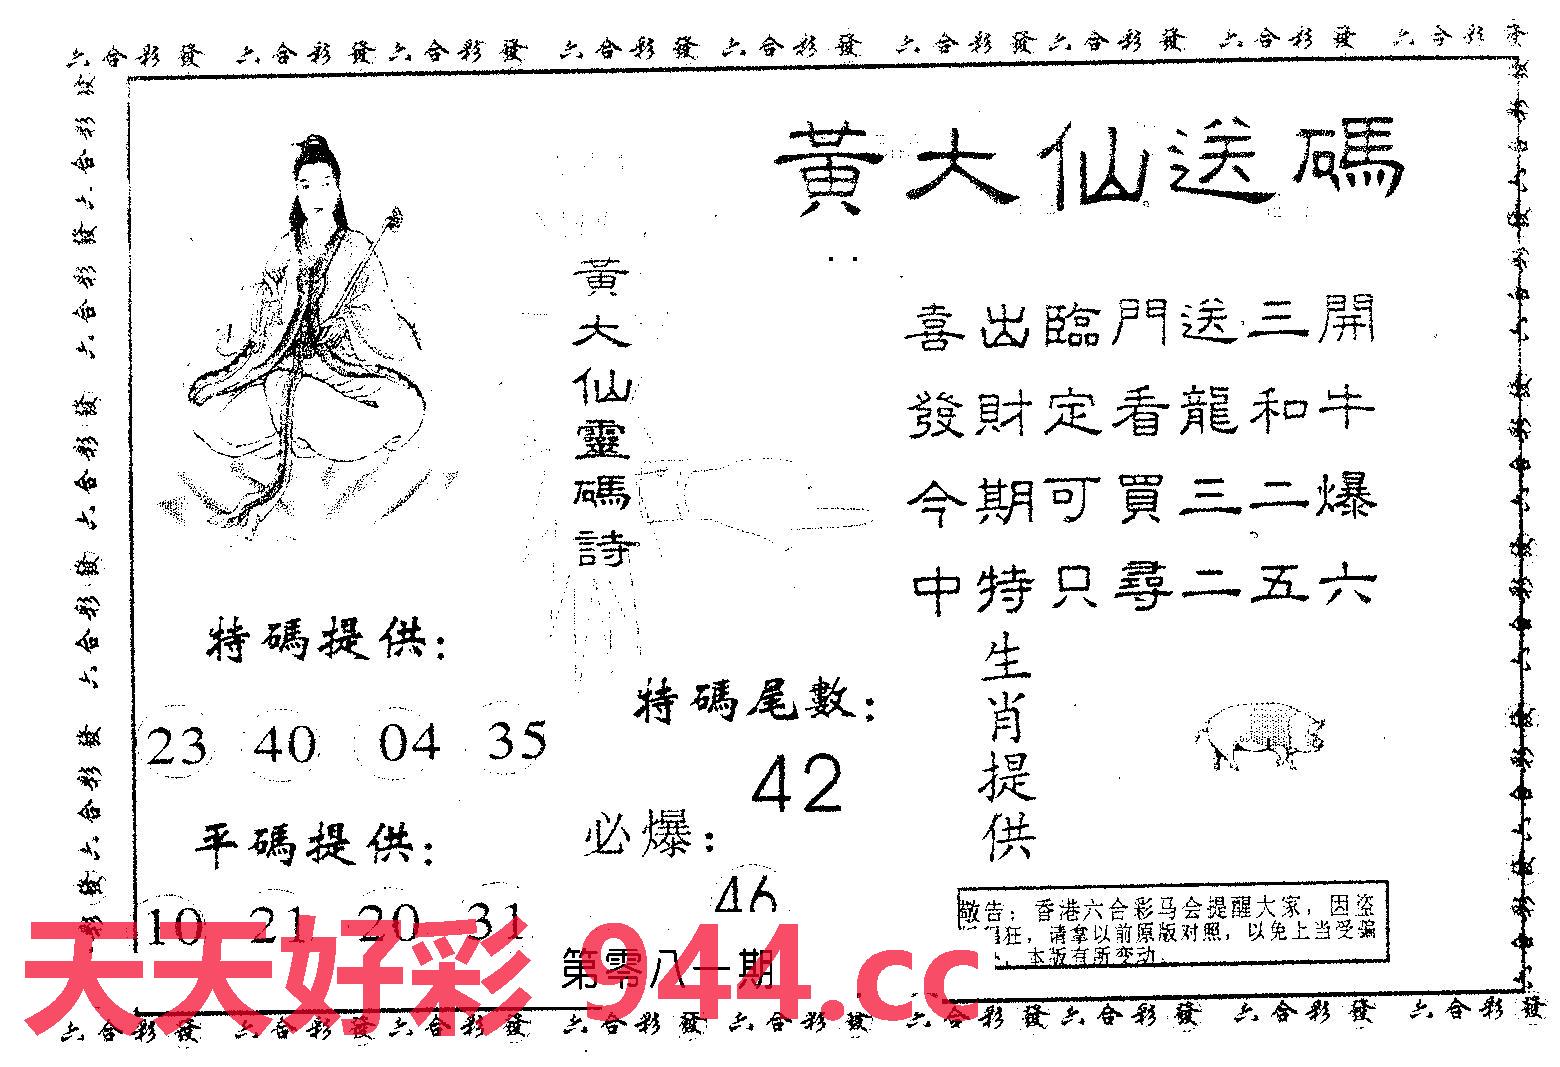 六合彩發 六合彩發六合彩發 六合彩發 六合彩發 六合彩發六合彩發 六合彩發 六合彩發
黃大仙送碼
黃大仙靈碼詩
喜出臨門送三開
發財定看龍和牛
今期可買三二爆
中特只尋二五六
特碼提供：
23 40 04 35
平碼提供：
10 21 20 31
特碼尾數：
42
必爆：
46
生肖提供
敬告：香港六合彩马会提醒大家，因盗
狂，请拿以前原版对照，以免上当受骗
，本版有所变动.
第零八一期
天天好彩 944.cc
六合彩發 六合彩發 六合彩發 六合彩發 六合彩發 六合彩發六合彩發 六合彩發 六合彩發